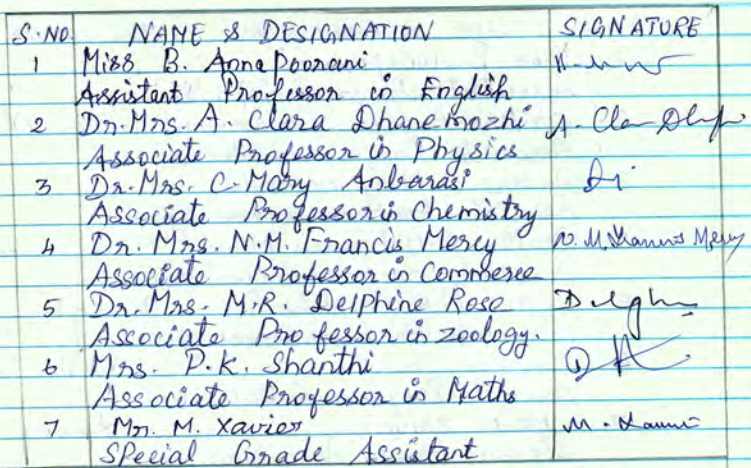 S.NO. NAME & DESIGNATION SIGNATURE
1 Miss B. Anna Poorani
Assistant Professor in English
2 Dr.Mrs. A. Clara Dhanemozhi A. Cla
Associate Professor in Physics
3 Dr.Mrs. C.Mary Anbarasi
Associate Professor in Chemistry
4 Dr. Mrs. N.M. Francis Mercy N. M. Francis Mercy
Associate Professor in Commerce
5 Dr. Mrs. M.R. Delphine Rose
Associate Professor in zoology.
6 Mrs. P.K. Shanthi
Associate Professor in Maths
7 Mr. M. Xavier M. Xavier
SPecial Grade Assistant